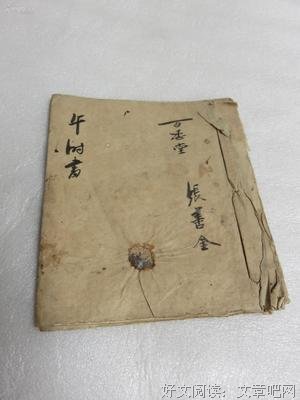 張善金
百忍堂
午时書
好文阅读：文章吧网